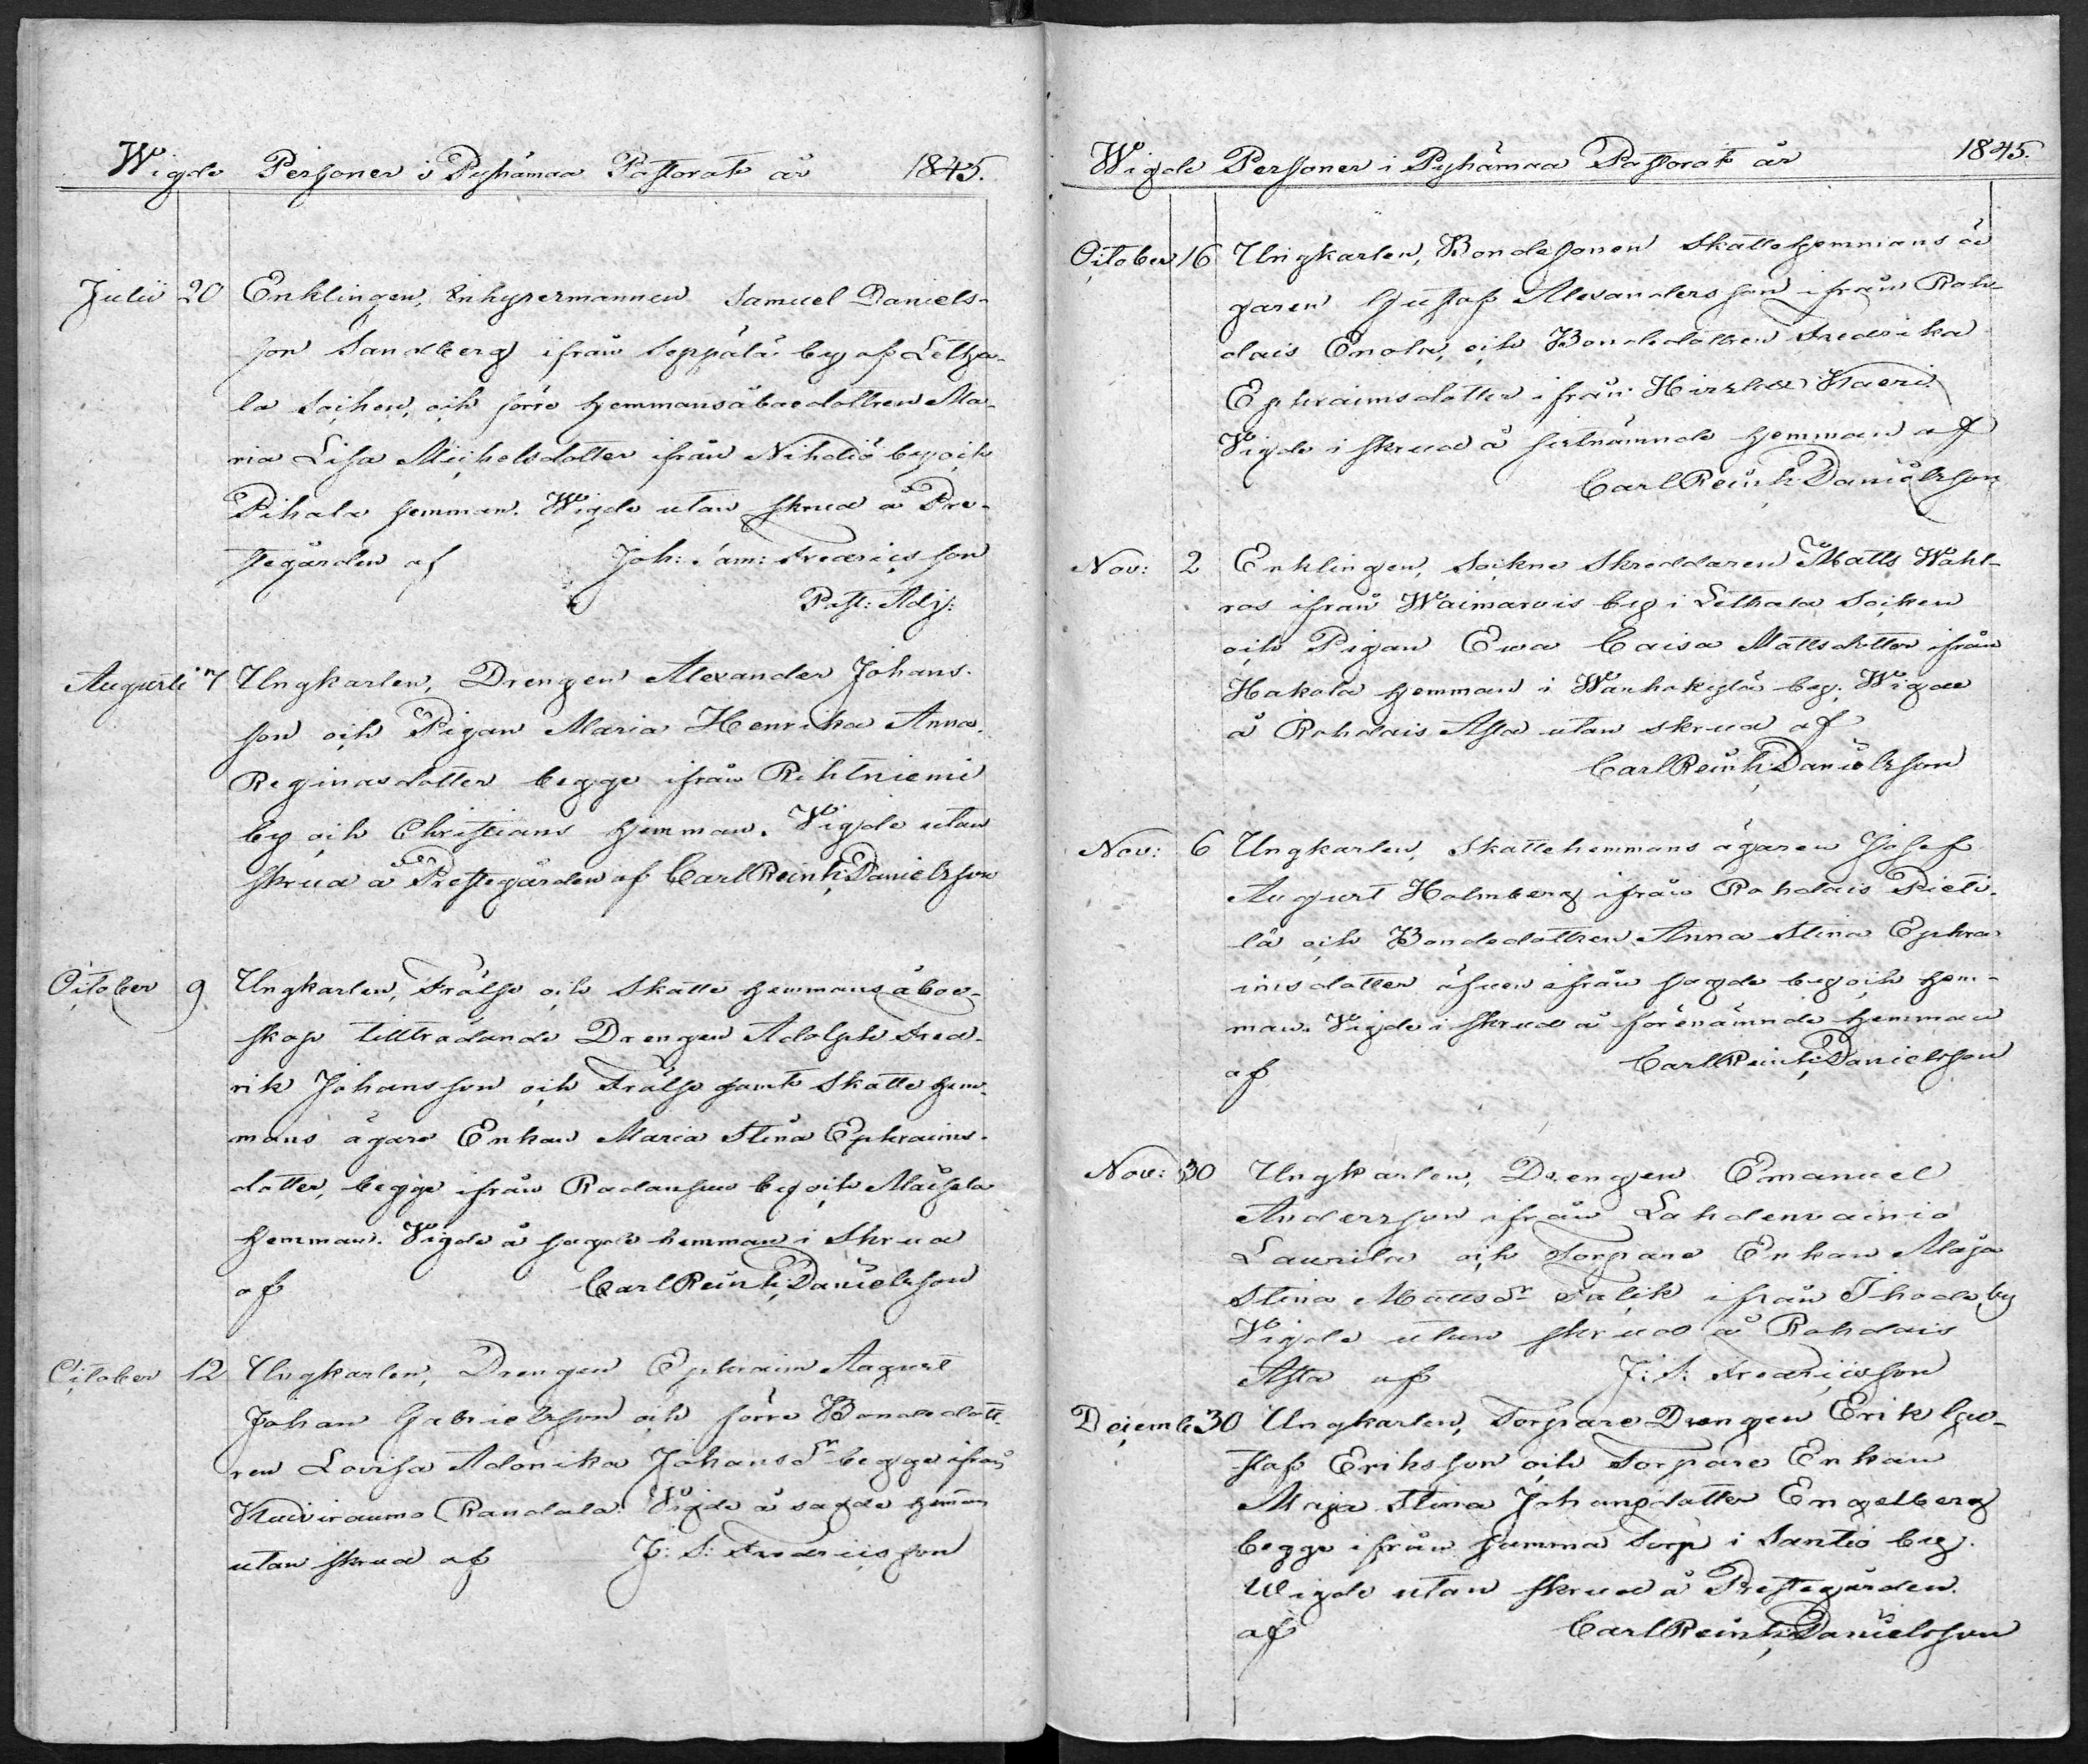 Wigde Personer i Pyhämaa Pastorat år 1845.
Julii 20 Enklingen, Inhysermannen Samuel Daniels-
son Sandberg ifrån Seppälä by af Letha-
la Socken, och förre Hemmansåboedottren Ma-
ria Lisa Michelsdotter ifrån Nihdiö by och
Pihala hemman. Wigde utan skrud å Pre-
stegården af Joh: Sam: Fredricsson
Past: Adj:
Augusti 7 Ungkarlen, Drengen Alexander Johans-
son och Pigan Maria Henrika Anna
Reginasdotter begge ifrån Rihtniemi
by och Christians hemman. Vigde utan
skrud å Prestegården af Carl Reinh: Danielsson
October 9 Ungkarlen, Frälse och Skatte Hemmans åboe-
skap tillträdande Drengen Adolph Fred-
rik Johansson och Frälse samt Skatte Hem-
mans ägare Enkan Maria Stina Ephraims-
dotter, begge ifrån Radansuu by och Maisela
hemman. Vigde å sagde hemman i Skrud
af Carl Reinh: Danielsson
October 12 Ungkarlen, Drengen Ephraim August
Johan Gabrielsson och förre Bondedott-
ren Lovisa Adonika Johansdr begge ifrån
Kuiviraumo Randala. Vigde å sagde hemman
utan skrud af J: S: Fredricsson
Wigde Personer i Pyhämaa Pastorat år 1845.
October 16 Ungkarlen, Bondesonen Skattehemmans ä-
garen Gustaf Alexandersson ifrån Roh-
dais Enola, och Bondedottren Fredrika
Ephraimsdotter ifrån Hirslax Kaeri
Vigde i skrud å sistnämnde hemman af
Carl Reinh: Danielsson
Nov: 2 Enklingen, Sockne Skreddaren Matts Wahl-
ros ifrån Waimarois by i Lethala Socken
och Pigan Ewa Caisa Mattsdotter ifrån
Hakola hemman i Warhokylä by. Wigde
å Rohdais Asta utan skrud af
Carl Reinh: Danielsson
Nov: 6 Ungkarlen, Skattehemmans ägaren Josef
August Holmberg ifrån Rohdais Pieti-
lä och Bondedottren Anna Stina Ephra-
imsdotter äfven ifrån sagde by och hem-
man. Vigde i skrud å förenämnde hemman
af Carl Reinh: Danielsson
Nov: 30 Ungkarlen, Drengen Emanuel
Andersson ifrån Lahdenvainio
Laurila och Torpare Enkan Maja
Stina Mattsdr Falck ifrån Ihode by
Vigde utan skrud å Rohdais
Asta af J: S: Fredricsson
Decemb: 30 Ungkarlen, Torpare Drengen Erik Gu-
staf Eriksson och Torpare Enkan
Maja Stina Johansdotter Engelberg
begge ifrån samma Torp i Santio by.
Wigde utan skrud å Prestegården.
af Carl Reinh: Danielsson